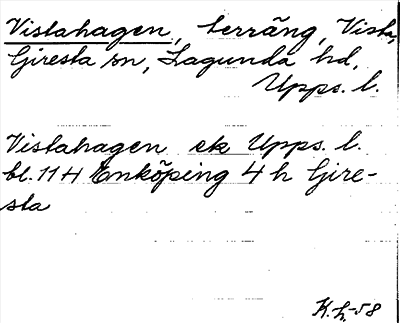 Vistahagen, terräng, Vista,
Giresta sn, Lagunda hd,
Upps. l.
Vistahagen ek Upps. l.
bl. 11 H Enköping 4 h Gire-
sta
K.L.-58